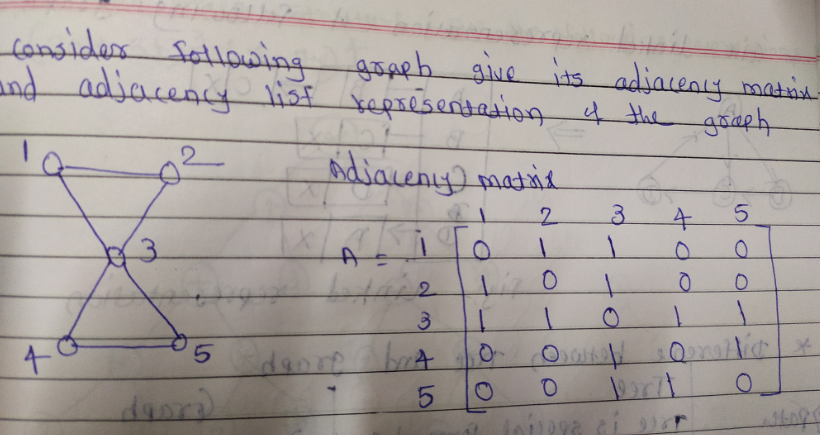 consider following graph give its adjacency matrix
and adjacency list representation of the graph
1 2
3
4 5
Adjacency matrix
1 2 3 4 5
A = 1 0 1 1 0 0
2 1 0 1 0 0
3 1 1 0 1 1
4 0 0 1 0 1
5 0 0 1 1 0